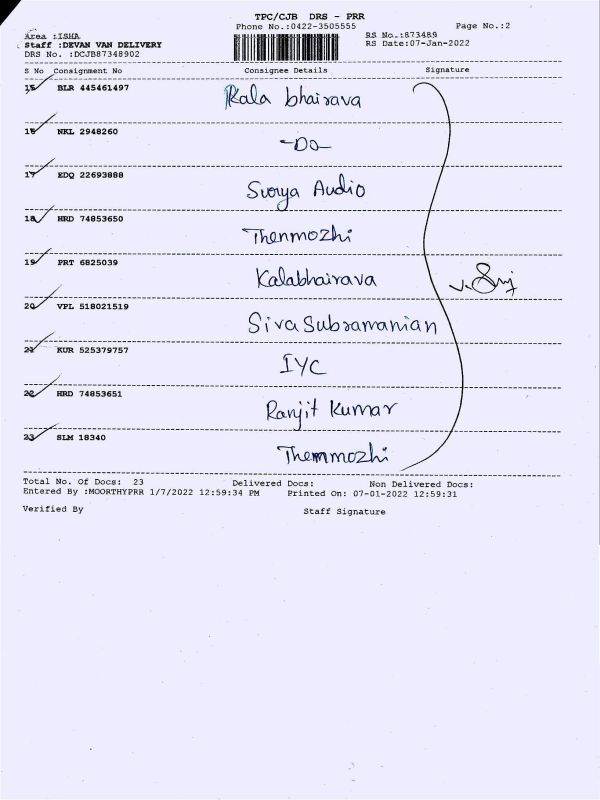 TPC/CJB DRS - PRR
Phone No.:0422-3505555 Page No.:2
Area :ISHA RS No.:873489
Staff :DEVAN VAN DELIVERY RS Date:07-Jan-2022
DRS No. :DCJB87348902
S No Consignment No Consignee Details Signature
15 BLR 445461497 Kala bhairava
16 NKL 2948260 -Do-
17 EDQ 22693888 Surya Audio
18 HRD 74853650 Thenmozhi
19 PRT 6825039 Kalabhairava
20 VPL 518021519 Siva Subramanian
21 KUR 525379757 IYC
22 HRD 74853651 Ranjit Kumar
23 SLM 18340 Themmozhi
Total No. Of Docs: 23 Delivered Docs: Non Delivered Docs:
Entered By :MOORTHYPRR 1/7/2022 12:59:34 PM Printed On: 07-01-2022 12:59:31
Verified By Staff Signature